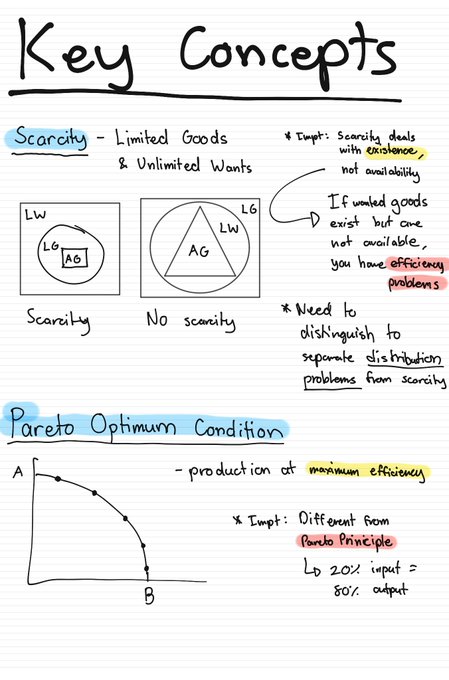 Key Concepts
Scarcity - Limited Goods
& Unlimited Wants
* Impt: Scarcity deals
with existence,
not availability
If wanted goods
exist but are
not available,
you have efficiency
problems
LW
LG
AG
Scarcity
LG
LW
AG
No scarcity
* Need to
distinguish to
separate distribution
problems from scarcity
Pareto Optimum Condition
A
B
- production at maximum efficiency
* Impt: Different from
Pareto Principle
↳ 20% input =
80% output